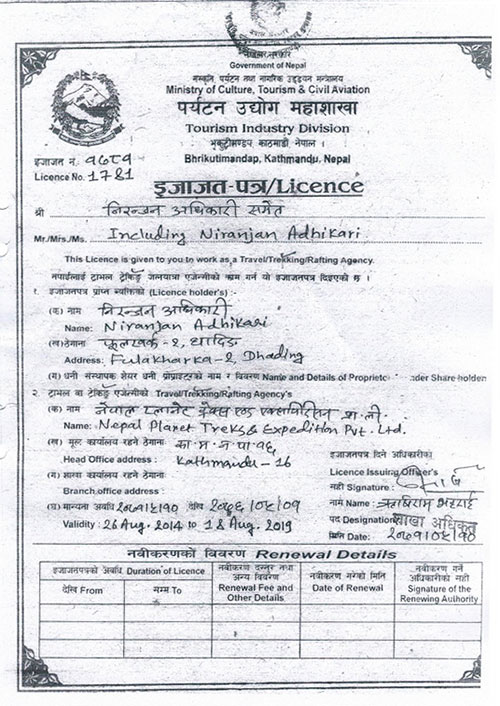 नेपाल सरकार
Government of Nepal
संस्कृति पर्यटन तथा नागरिक उड्डयन मन्त्रालय
Ministry of Culture, Tourism & Civil Aviation
पर्यटन उद्योग महाशाखा
Tourism Industry Division
भृकुटीमण्डप, काठमाडौं, नेपाल ।
Bhrikutimandap, Kathmandu, Nepal
इजाजत नं. १७८१
Licence No. 1781
इजाजत-पत्र/Licence
श्री निरन्जन अधिकारी समेत
Mr./Mrs./Ms. Including Niranjan Adhikari
This Licence is given to you to work as a Travel/Trekking/Rafting Agency.
तपाईंलाई ट्राभल ट्रेकिङ्ग जलयात्रा एजेन्सीको काम गर्न यो इजाजतपत्र दिइएको छ ।
१. इजाजतपत्र प्राप्त व्यक्तिको (Licence holder's) :-
(क) नाम निरन्जन अधिकारी
Name: Niranjan Adhikari
(ख) ठेगाना फूलखर्क - २, धादिङ
Address: Fulakharka-2, Dhading
(ग) धनी संस्थापक शेयर धनी प्रोप्राइटरको नाम र विवरण Name and Details of Propriete under Share-holder
२. ट्राभल वा ट्रेकिङ्ग एजेन्सीको Travel/Trekking/Rafting Agency's
(क) नाम नेपाल प्लानेट ट्रेक्स एण्ड एक्सपिडिसन प्रा. ली.
Name: Nepal Planet Treks & Expedition Pvt. Ltd.
(ख) मूल कार्यालय रहने ठेगाना का. म. न. पा १६
Head Office address : Kathmandu - 16
(ग) शाखा कार्यालय रहने ठेगाना
Branch office address :
(घ) मान्यता अवधि २०७१।५।१० देखि २०७६।०५।०१
Validity : 26 Aug. 2014 to 18 Aug. 2019
इजाजतपत्र दिने अधिकारीको
Licence Issuing Officer's
सही Signature :
नाम Name : ऋषिराम भट्टराई
पद Designation: शाखा अधिकृत
मिति Date: २०७१।०५।१०
नवीकरणको विवरण Renewal Details
इजाजतपत्रको अवधि Duration of Licence
देखि From
सम्म To
नवीकरण दस्तुर तथा अन्य विवरण
Renewal Fee and Other Details
नवीकरण गरेको मिति
Date of Renewal
नवीकरण गर्ने अधिकारीको सही
Signature of the Renewing Authority